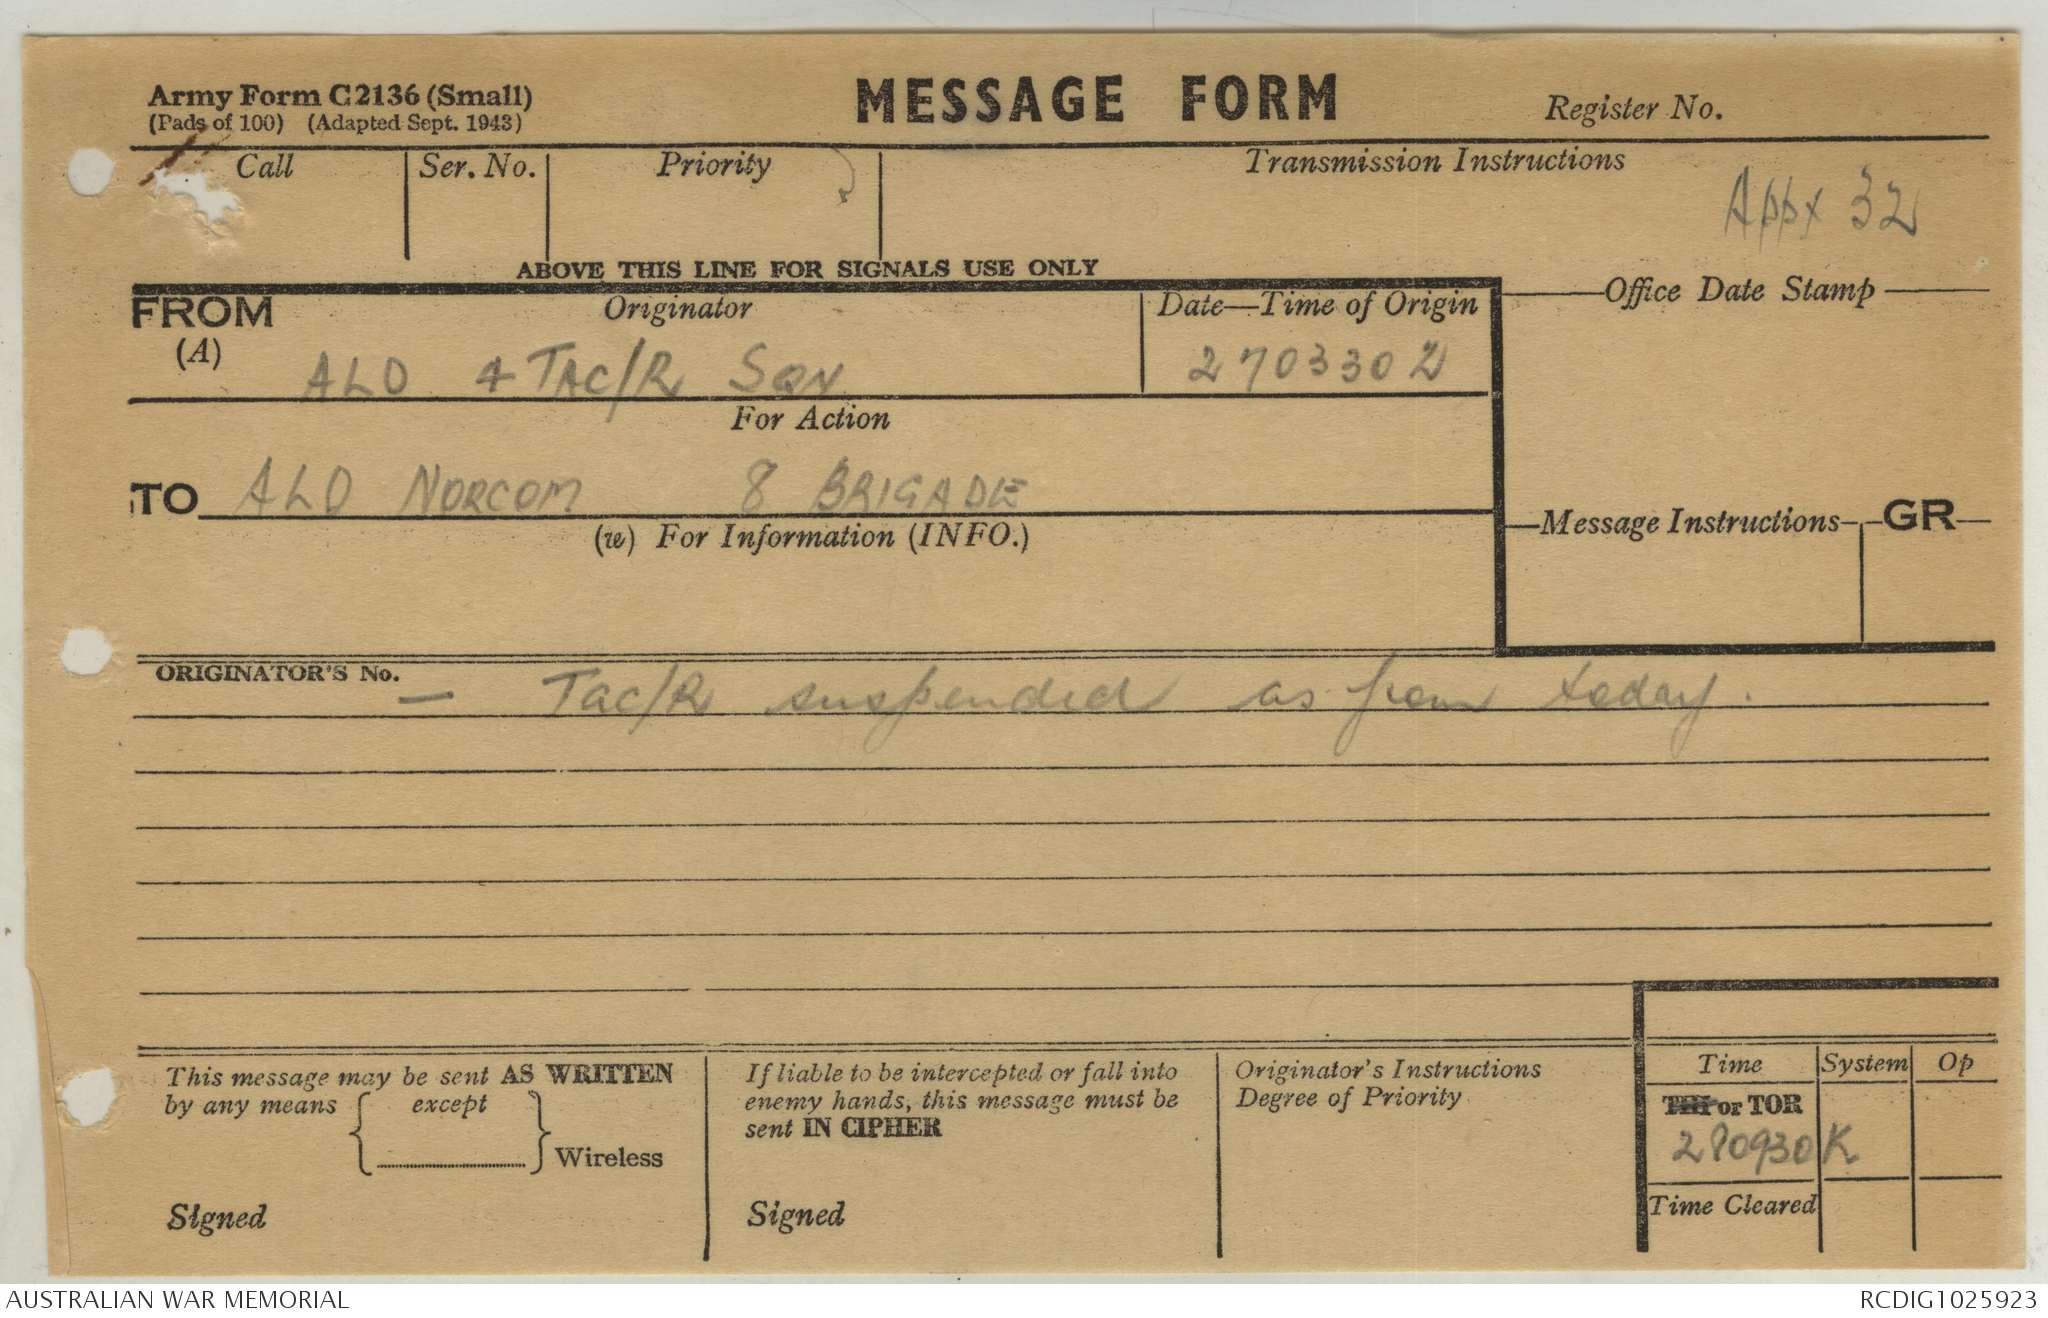 Army Form C2136 (Small)
(Pads of 100) (Adapted Sept. 1943)
MESSAGE FORM
Register No.
Call
Ser. No.
Priority
Transmission Instructions
Appx 32
ABOVE THIS LINE FOR SIGNALS USE ONLY
FROM
(A)
Originator
Date—Time of Origin
Office Date Stamp
ALO 4 TAC/R SQN
270330Z
For Action
TO ALO NORCOM 8 BRIGADE
(w) For Information (INFO.)
Message Instructions
GR
ORIGINATOR'S No.
— Tac/R suspended as from today.
This message may be sent AS WRITTEN
by any means except
Wireless
Signed
If liable to be intercepted or fall into
enemy hands, this message must be
sent IN CIPHER
Signed
Originator's Instructions
Degree of Priority
Time System Op
THI or TOR
280930K
Time Cleared
AUSTRALIAN WAR MEMORIAL
RCDIG1025923